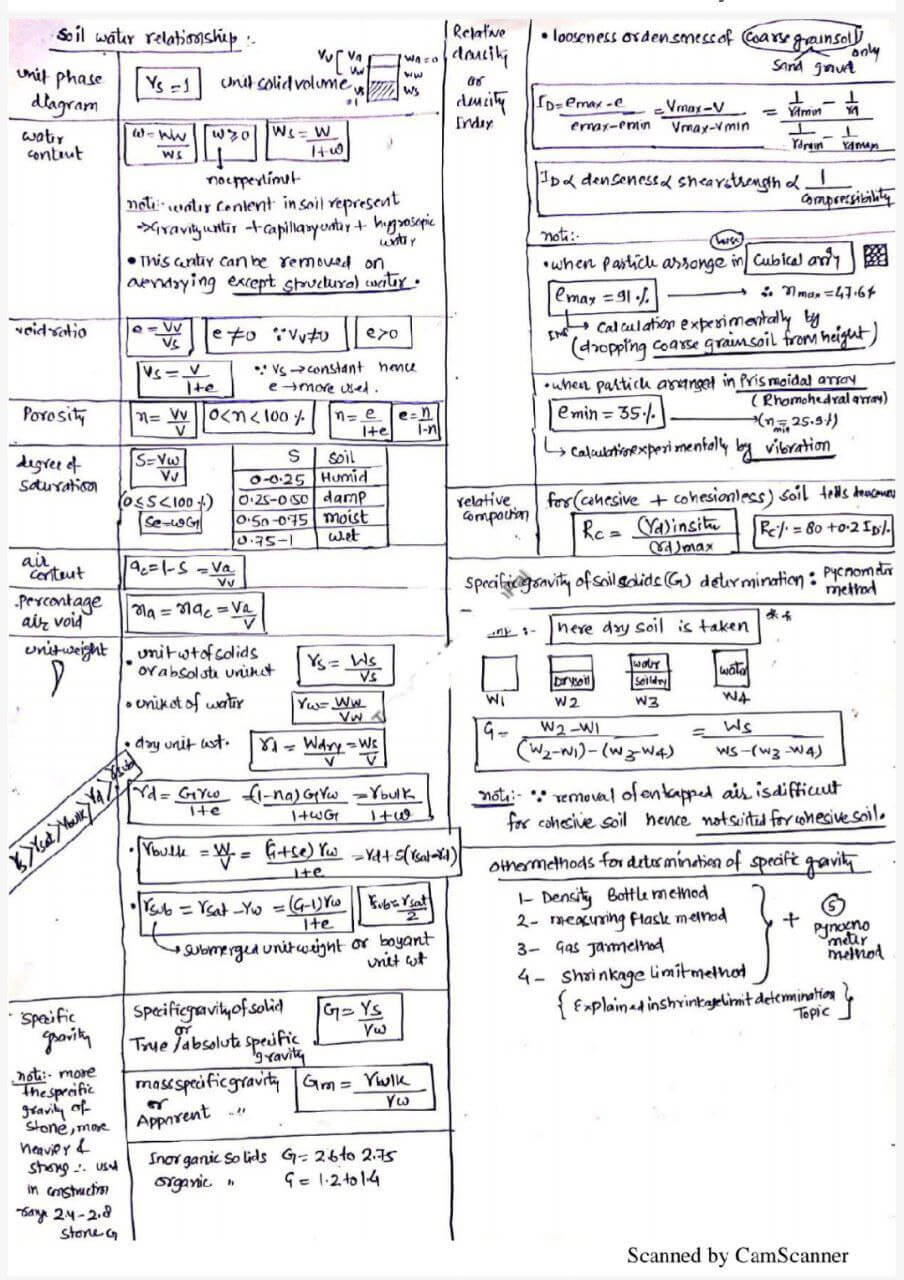 Soil water relationship :-
unit phase
diagram
Vs = 1
unit solid volume
Vv
Va
Vw
Wa=0
Ww
Ws
=1
water
content
w = Ww/Ws
w ≥ 0
Ws = W/(1+w)
no upper limit
note:- water content in soil represent
→ Gravity water + capillary water +
water
• This water can be removed on
except structural water.
void ratio
e = Vv/Vs
e ≠ 0 ∵ Vv ≠ 0
e > 0
Vs = V/(1+e)
∵ Vs → constant hence
e → more used.
Porosity
n = Vv/V
0 < n < 100 %
n = e/(1+e)
e = n/(1-n)
degree of
saturation
S = Vw/Vv
(0 ≤ S < 100 %)
Se = wG
S soil
0-0.25 Humid
0.25-0.50 damp
0.50-0.75 moist
0.75-1 wet
air
content
ac = 1-S = Va/Vv
Percentage
air void
na = nac = Va/V
unit weight
• unit wt of solids
or absolute unit wt
γs = Ws/Vs
• unit wt of water
γw = Ww/Vw
• dry unit wt.
γd = Wdry/V = Ws/V
γs > γsat > γbulk > γd > γsub
γd = Gγw/(1+e) = (1-na)Gγw/(1+wG) = γbulk/(1+w)
• γbulk = W/V = (G+Se)γw/(1+e) = γd + S(γsat-γd)
• γsub = γsat - γw = (G-1)γw/(1+e)
γsub = γsat/2
→ submerged unit weight or boyant
unit wt
specific
gravity
specific gravity of solid
or
True / absolute specific
gravity
G = γs/γw
note:- more
the specific
gravity of
stone, more
heavier &
strong ∴ used
in construction
range 2.4-2.8
stone G
mass specific gravity
or
Apparent "
Gm = γbulk/γw
Inorganic solids G = 2.6 to 2.75
organic " G = 1.2 to 1.4
Relative
density
or
density
Index
• looseness or denseness of coarse grain soil
only
sand gravel
ID = (emax-e)/(emax-emin) = (Vmax-V)/(Vmax-Vmin) = (1/γdmin - 1/γd)/(1/γdmin - 1/γdmax)
ID ∝ denseness ∝ shear strength ∝ 1/compressibility
note:-
• when particle arrange in Cubical array
emax = 91 %
∴ nmax = 47.6%
→ Calculation experimentally by
(dropping coarse grain soil from height)
• when particle arranget in Prismoidal array
(Rhomohedral array)
emin = 35 %
→ (nmin = 25.9%)
→ Calculation experimentally by vibration
relative
compaction
for (cohesive + cohesionless) soil tells denseness
Rc = (γd)insitu/(γd)max
Rc% = 80 + 0.2 ID%
specific gravity of soil solids (G) determination : Pycnometer
method
:- here dry soil is taken **
W1
Dry soil
W2
water
soil dry
W3
water
W4
G = (W2-W1)/((W2-W1)-(W3-W4)) = Ws/(Ws-(W3-W4))
note:- ∵ removal of entapped air is difficut
for cohesive soil hence not suited for cohesive soil.
other methods for determination of specific gravity
1- Density Bottle method
2- measuring flask method
3- Gas Jar method
4- shrinkage limit method
+
5
pycno
meter
method
{ Explained in shrinkage limit determination
Topic }
Scanned by CamScanner